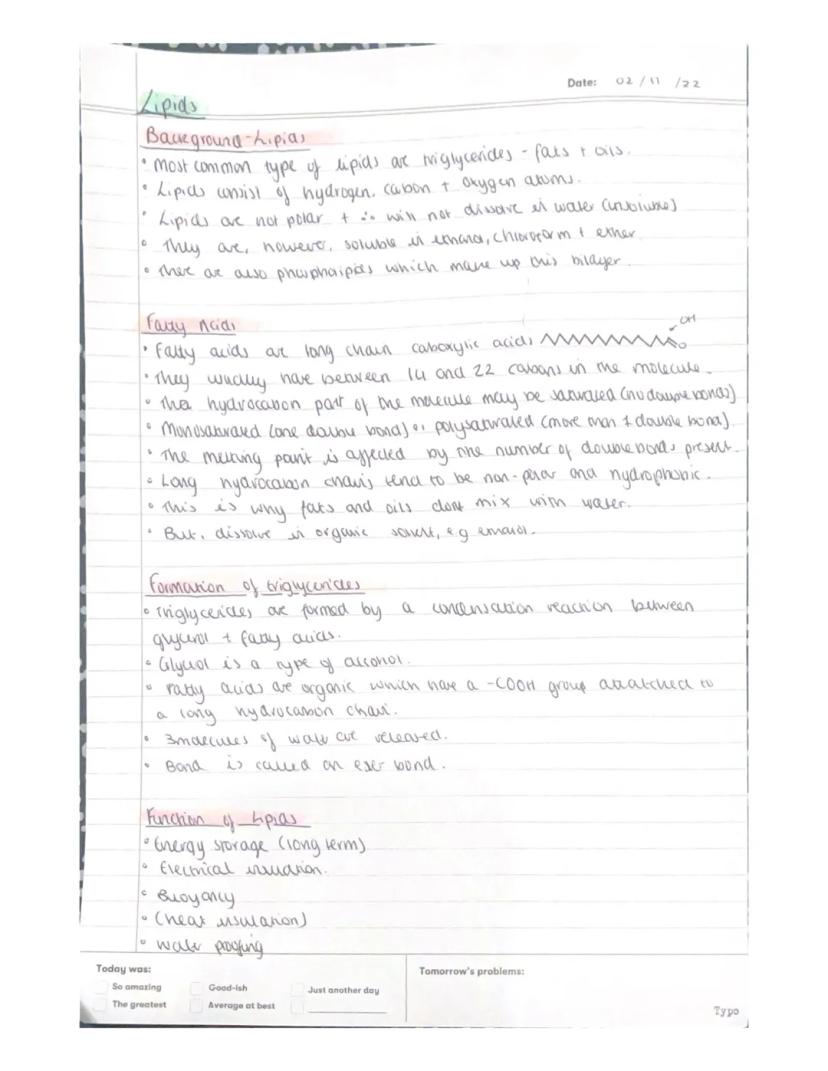 Date: 02/11/22
Lipids
Background-Lipids
• Most common type of lipids are triglycerides - fats + oils.
• Lipids consist of hydrogen, carbon + oxygen atoms.
• Lipids are not polar + ∴ will not dissolve in water (insoluble)
• They are, however, soluble in ethanol, chloroform + ether
• There are also phospholipids which make up this bilayer.
Fatty Acids
OH
• Fatty acids are long chain caboxylic acids
• They usually have between 14 and 22 carbons in the molecule.
• The hydrocarbon part of the molecule may be saturated (no double bonds)
• Monosaturated (one double bond) or polysaturated (more than 1 double bond)
• The melting point is affected by the number of double bonds present.
• Long hydrocarbon chains tend to be non-polar and hydrophobic.
• This is why fats and oils dont mix with water.
• But, dissolve in organic solvent, e.g ethanol.
Formation of triglycerides
• Triglycerides are formed by a condensation reaction between
glycerol + fatty acids.
• Glycerol is a type of alcohol.
• Fatty acids are organic which have a -COOH group attatched to
a long hydrocarbon chain.
• 3 molecules of water are released.
• Bond is called an ester bond.
Function of Lipids
• Energy storage (long term)
• Electrical insulation.
• Buoyancy
• (heat insulation)
• Water proofing
Today was:
So amazing Good-ish Just another day
The greatest Average at best
Tomorrow's problems:
Typo